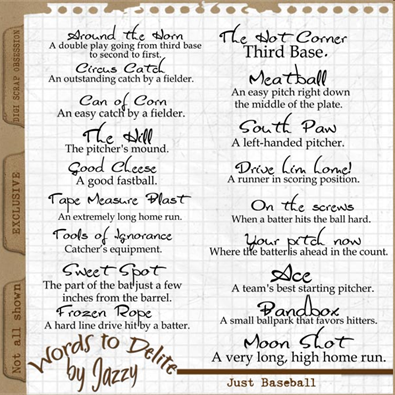 DIGI SCRAP OBSESSION
EXCLUSIVE
Not all shown
Around the Horn
A double play going from third base
to second to first.
Circus Catch
An outstanding catch by a fielder.
Can of Corn
An easy catch by a fielder.
The Hill
The pitcher's mound.
Good Cheese
A good fastball.
Tape Measure Blast
An extremely long home run.
Tools of Ignorance
Catcher's equipment.
Sweet Spot
The part of the bat just a few
inches from the barrel.
Frozen Rope
A hard line drive hit by a batter.
The Hot Corner
Third Base.
Meatball
An easy pitch right down
the middle of the plate.
South Paw
A left-handed pitcher.
Drive him home!
A runner in scoring position.
On the screws
When a batter hits the ball hard.
Your pitch now
Where the batter is ahead in the count.
Ace
A team's best starting pitcher.
Bandbox
A small ballpark that favors hitters.
Moon Shot
A very long, high home run.
Words to Delite
by Jazzy
Just Baseball